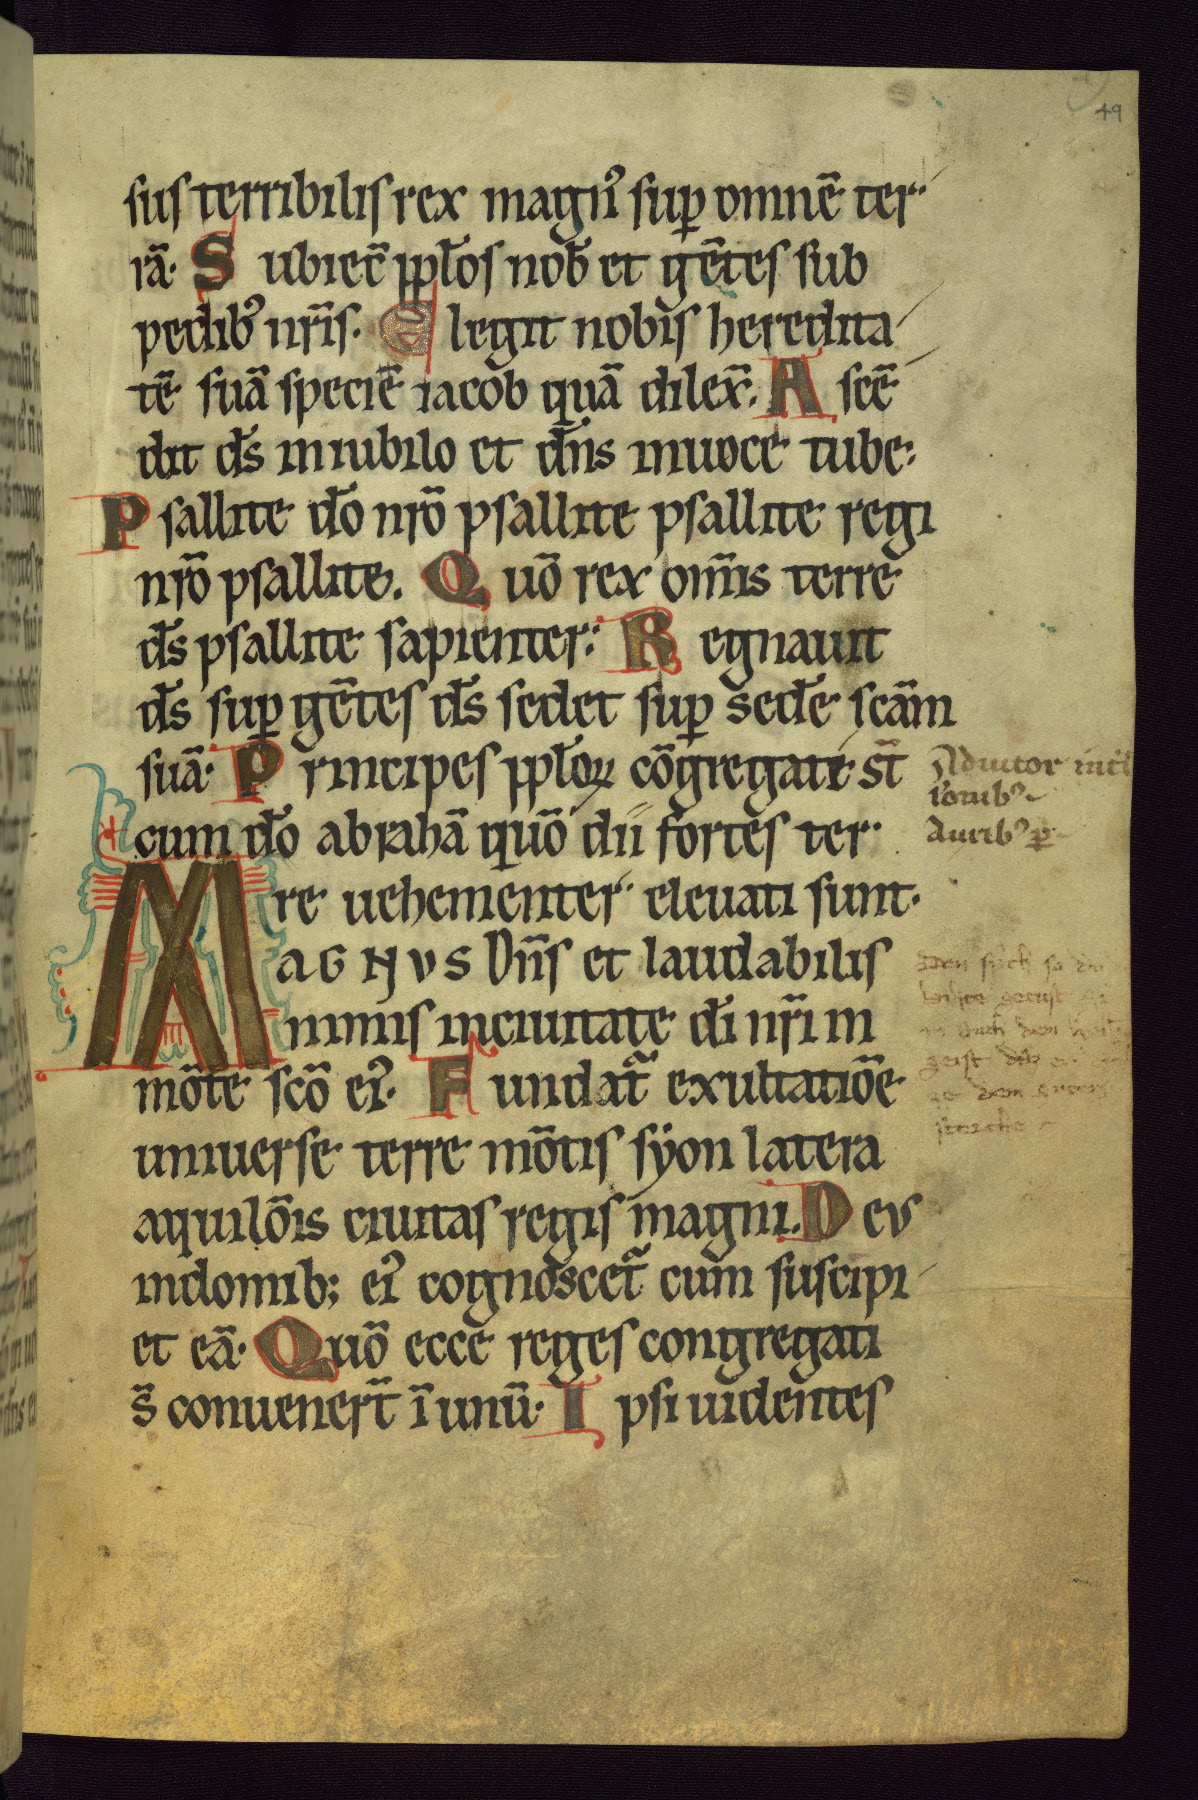 49
sus terribilis rex magn᾽ sup̱ omnē ter
rā. Subiec̄ ppl̄os nob̄ et gētes sub
pedib᾽ nr̄is. Elegit nobis heredita
tē suā speciē iacob quā dilex̄. Ascē
dit ds̄ in iubilo et dn̄s in uoce tube.
Psallite dō nrō psallite psallite regi
nrō psallite. Quō rex om̄is terre
ds̄ psallite sapienter. Regnauit
ds̄ sup̱ gētes ds̄ sedet sup̱ sedē scām
suā. Principes ppl̄oꝝ cōgregati st̄
cum dō abrahā quō dii fortes ter
re uehementer eleuati sunt.
MAGNVS Dn̄s et laudabilis
nimis in ciuitate dī nr̄i in
mōte scō ei᾽. Fundat᷑ exultatiōe
uniuerse terre mōtis syon latera
aquilōis ciuitas regis magni. Deus
in domib; ei᾽ cognoscet᷑ cum suscipi
et eā. Quō ecce reges congregati
s̄ conuenert̄ ī unū. Ipsi uidentes
Adiutor in
Aurib᾽ p̱